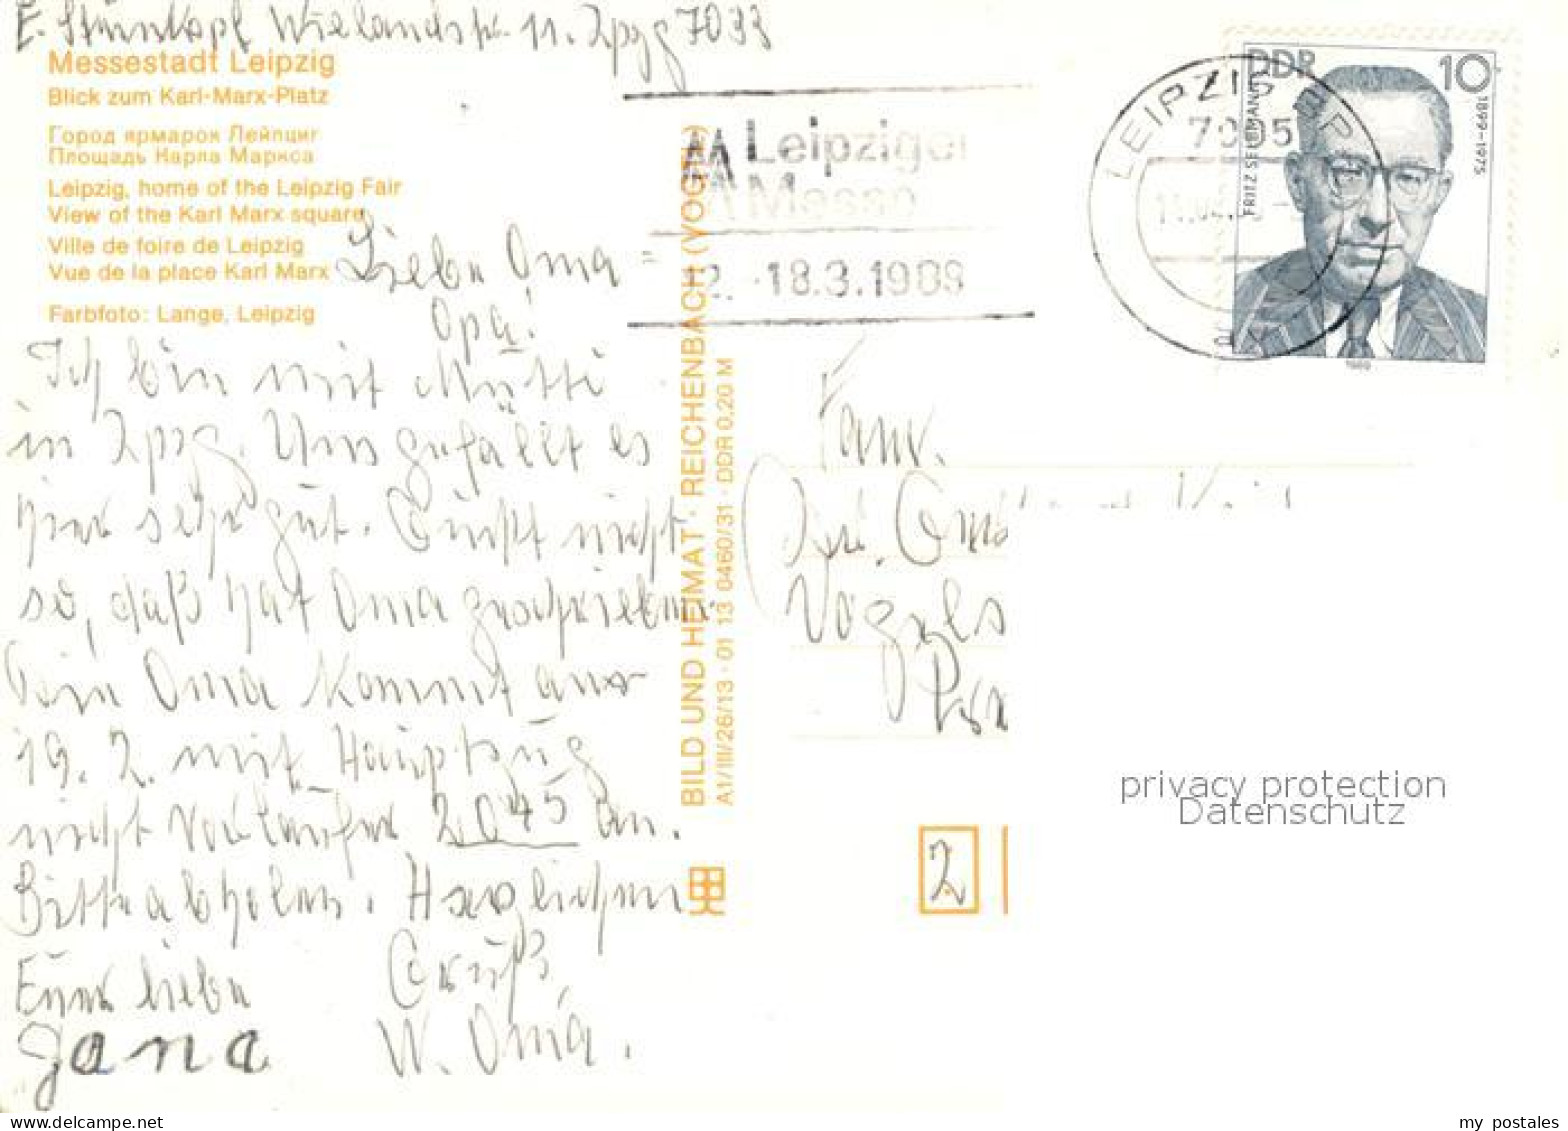 E. Wielandstr. 11. Lpzg 7033
Messestadt Leipzig
Blick zum Karl-Marx-Platz
Город ярмарок Лейпциг
Площадь Карла Маркса
Leipzig, home of the Leipzig Fair
View of the Karl Marx square
Ville de foire de Leipzig
Vue de la place Karl Marx
Farbfoto: Lange, Leipzig
Liebe Oma =
Opa!
Ich bin mit Mutti
in Lpzg. Uns gefällt es
hier sehr gut. nicht
so, daß hat Oma geschrieben.
Oma kommt am
19. 2. mit Hauptzug
nicht Vorläufer 20 45 an.
Bitte abholen. Herzlichen
Eure liebe Gruß,
Jana W. Oma.
BILD UND HEIMAT · REICHENBACH (VOGTL)
A1/III/26/13 · 01 13 0460/31 · DDR 0,20 M
Leipziger
Messe
18.3.1989
LEIPZIG BPA
7005
DDR 10
FRITZ SELBMANN
1899-1975
1989
Fam.
2
privacy protection
Datenschutz
my postales